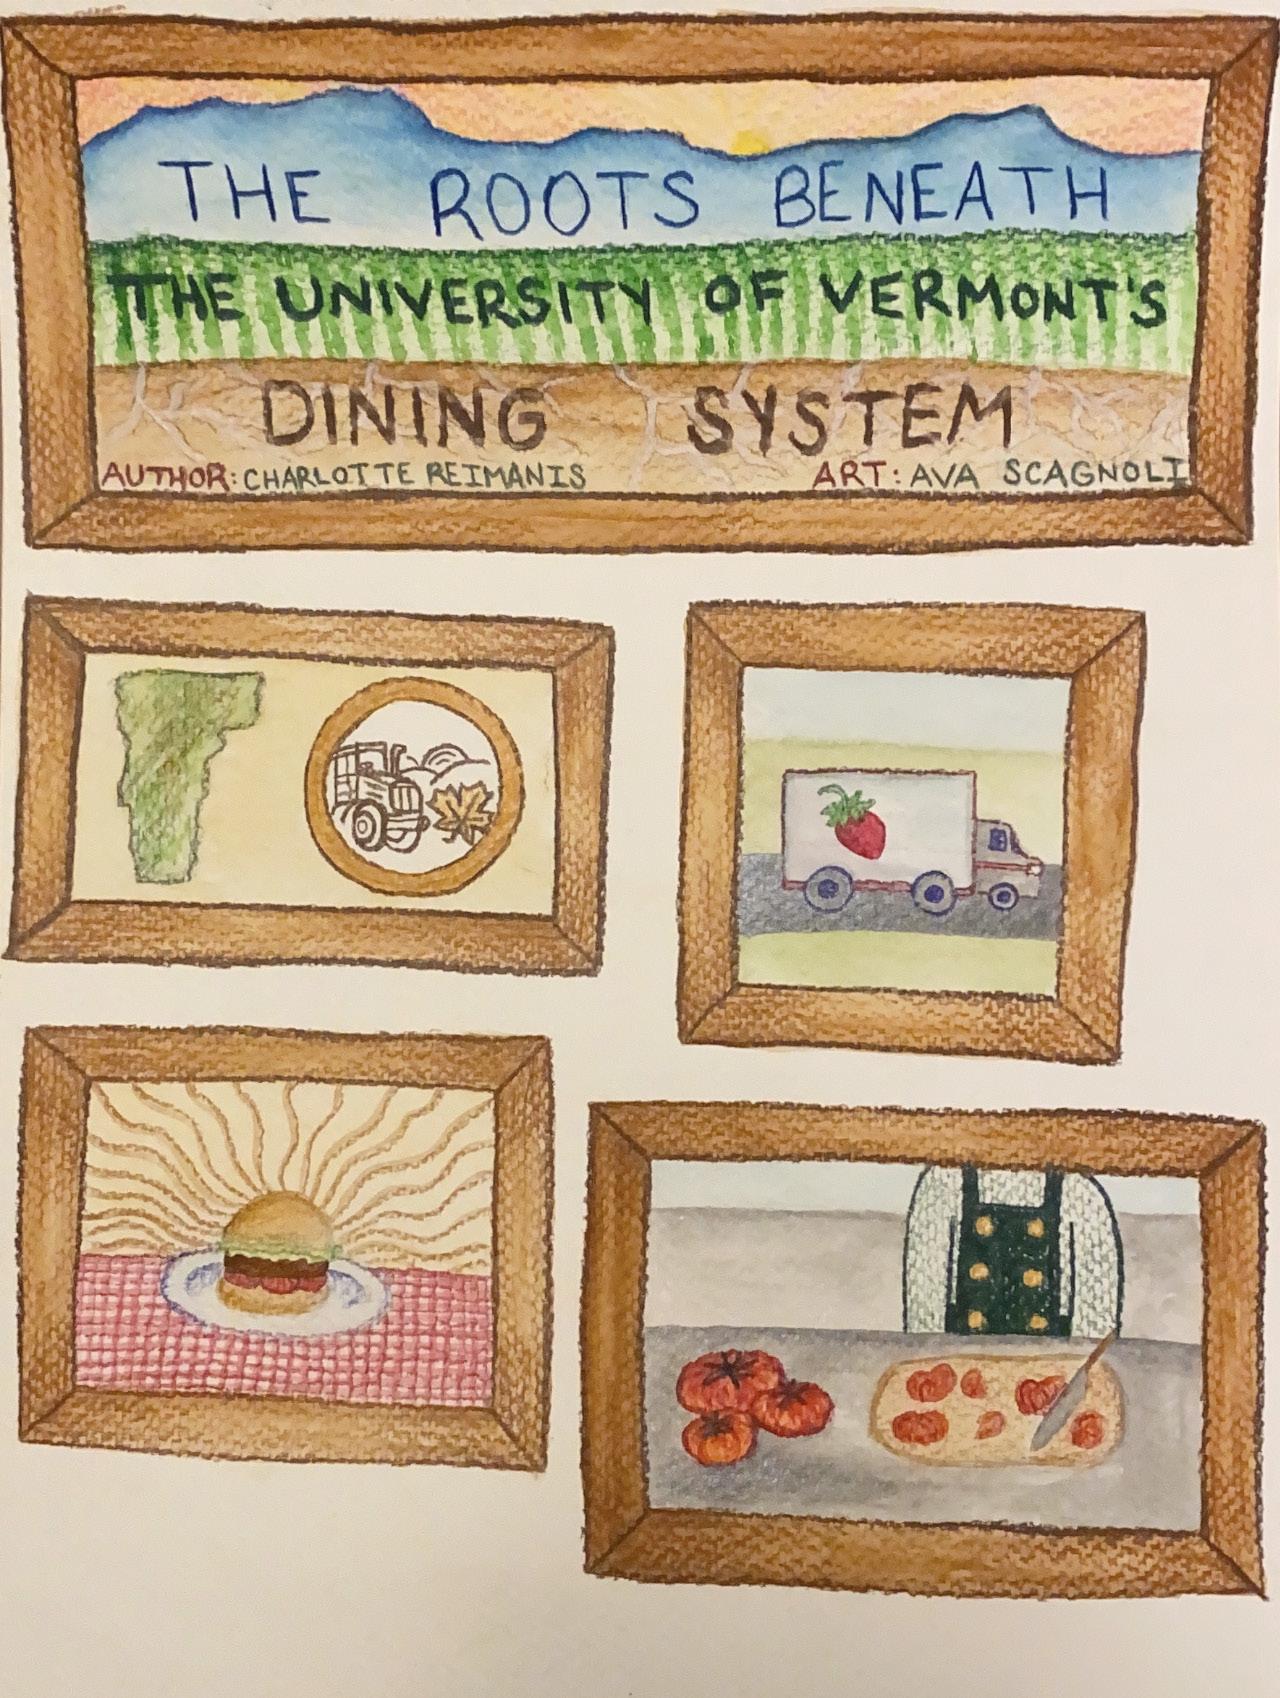 THE ROOTS BENEATH
THE UNIVERSITY OF VERMONT'S
DINING SYSTEM
AUTHOR: CHARLOTTE REIMANIS ART: AVA SCAGNOLI